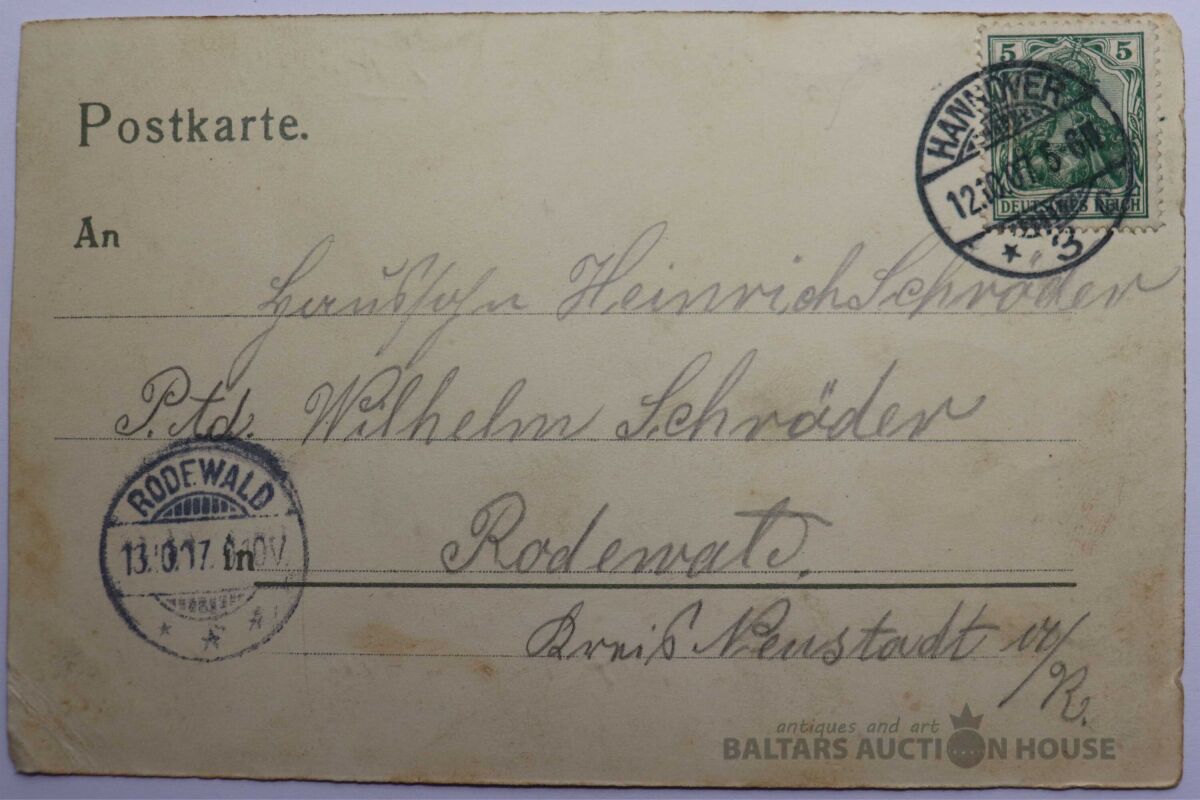 Postkarte.
5 5
DEUTSCHES REICH
HANNOVER
12.10.07. 5-6N.
* 3
An
Haussohn Heinrich Schröder
Wilhelm Schröder
RODEWALD
13.10.07.
in Rodewald.
Kreis Neustadt a/
R.
antiques and art
BALTARS AUCTION HOUSE